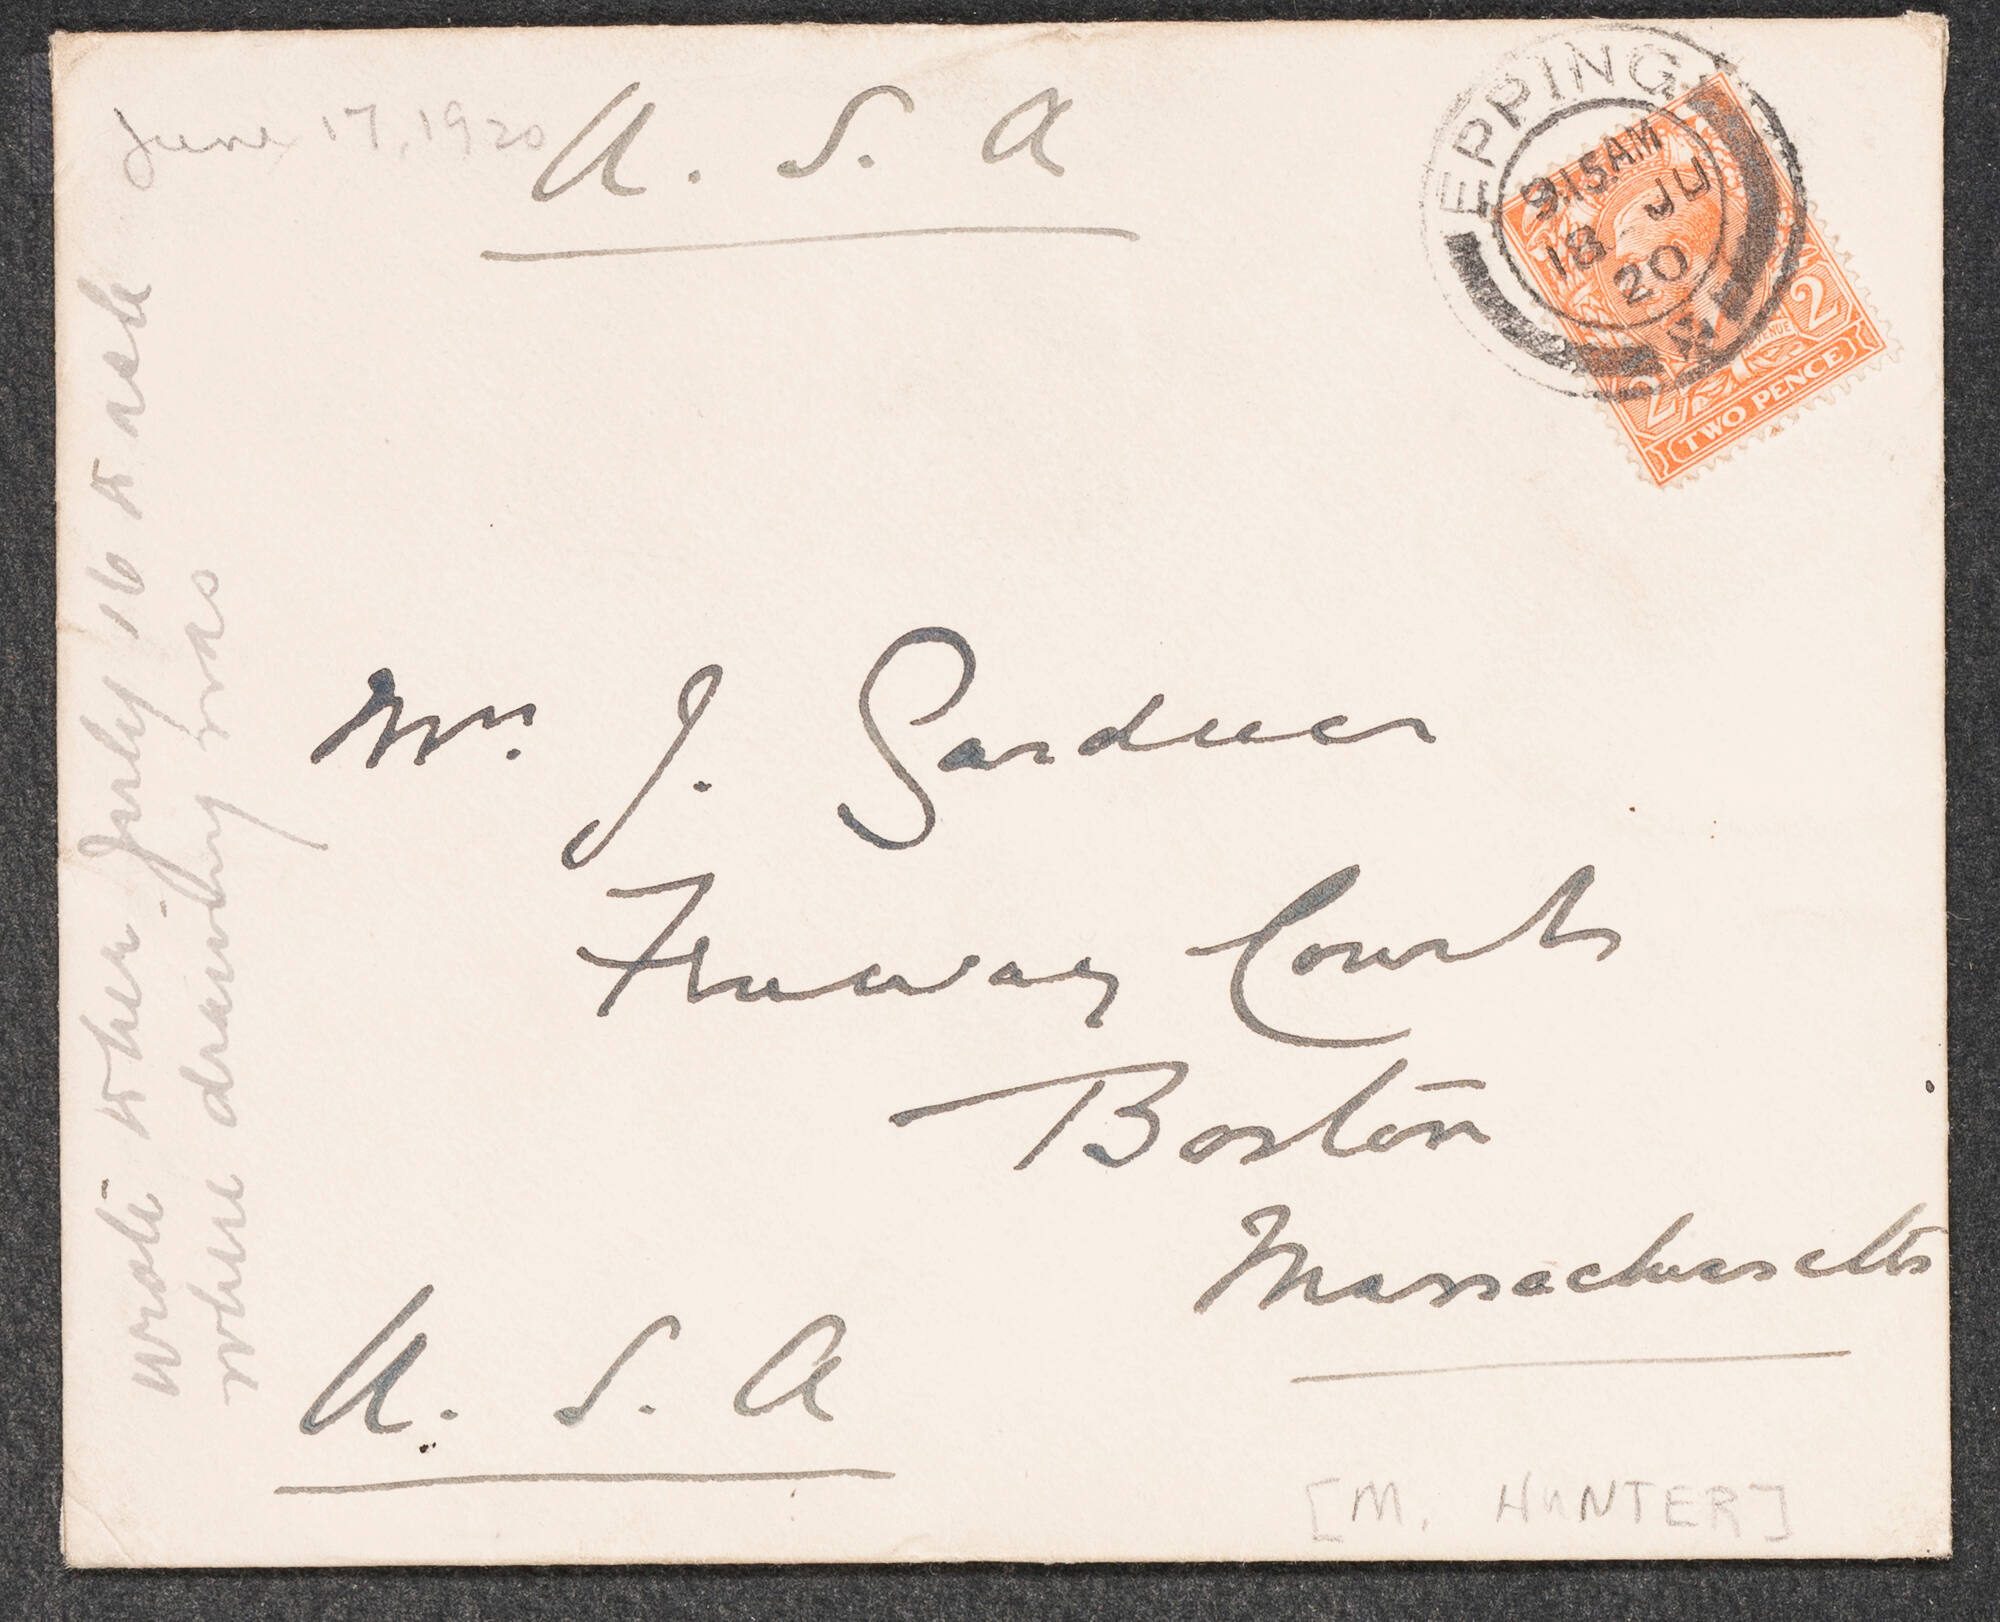 June 17, 1920
U. S. A
EPPING
9.15 AM
18 JU
20
2 REVENUE 2
TWO PENCE
wrote to her July 16 to ask
where drawing was
Mrs. J. Gardner
Fenway Court
Boston
Massachusetts
U. S. A
[M. HUNTER]